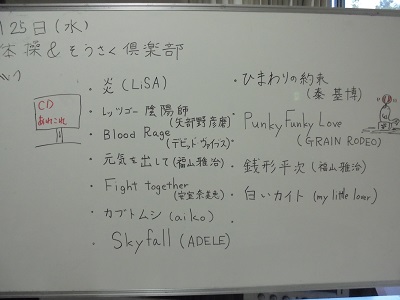 月25日(水)
体操&そうさく倶楽部
CD
あれこれ
・炎(LiSA)
・レッツゴー陰陽師
(矢部野彦麿)
・Blood Rage
(デビッド・ヴァイス)
・元気を出して(福山雅治)
・Fight together
(安室奈美恵)
・カブトムシ(aiko)
・Skyfall(ADELE)
・ひまわりの約束
(秦 基博)
・Punky Funky Love
(GRAIN RODEO)
・銭形平次(福山雅治)
・白いカイト(my little lover)